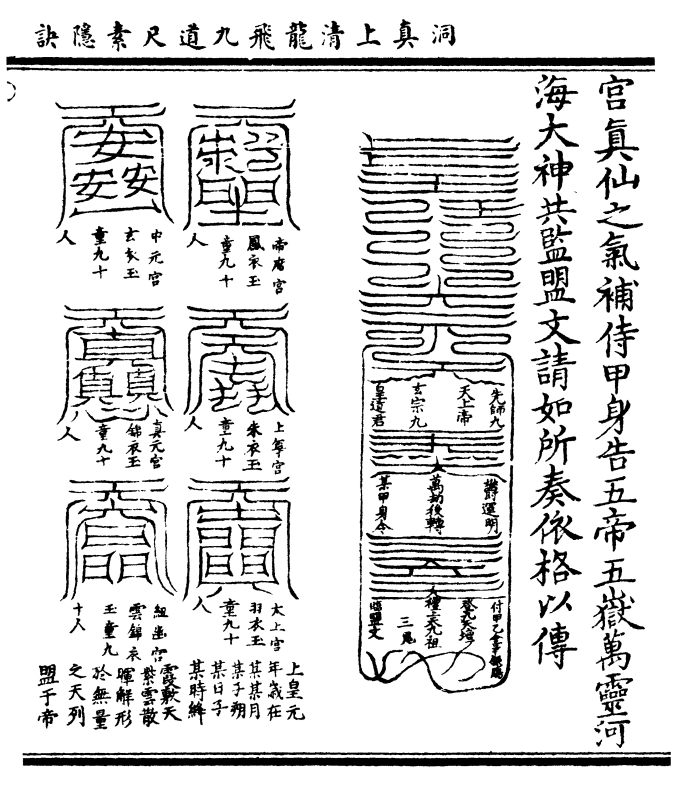 洞真上清龍飛九道尺素隱訣
宮真仙之氣補侍甲身告五帝五嶽萬靈河
海大神共監盟文請如所奏依格以傳
先師九
天上帝
玄宗九
皇道君
鬱運明
萬劫後轉
某甲身今
三鬼
臨盟文
帝席宮
鳳衣玉
童九十
人
上尊宮
朱衣玉
童九十
人
太上宮
羽衣玉
童九十
人
中元宮
玄衣玉
童九十
人
真元宮
錦衣玉
童九十
人
雲錦衣
玉童九
十人
上皇元
年歲在
某某月
某子朔
某日子
某時絳
霞敷天
紫雲散
暉解形
於無量
之天列
盟于帝